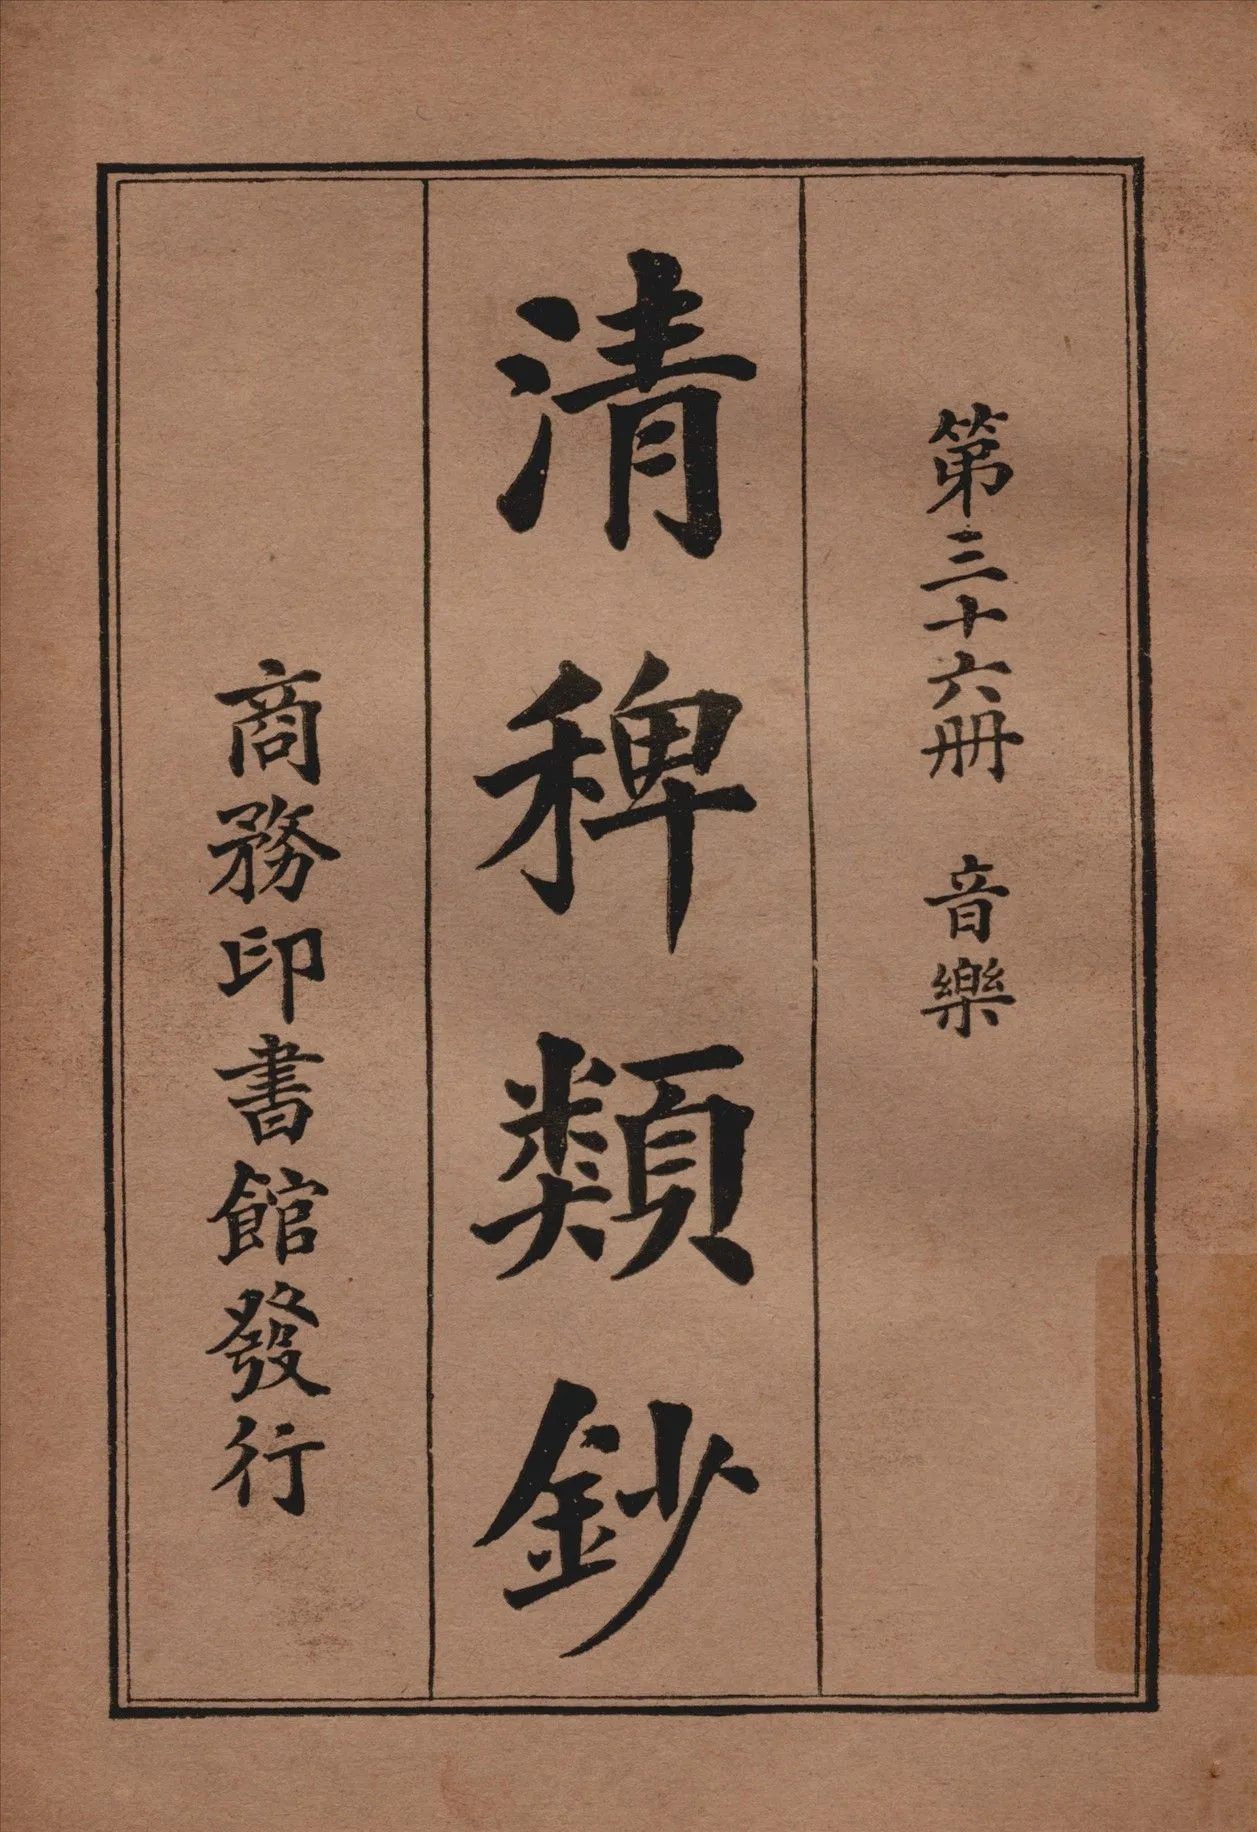 第三十六册　音樂
清稗類鈔
商務印書館發行